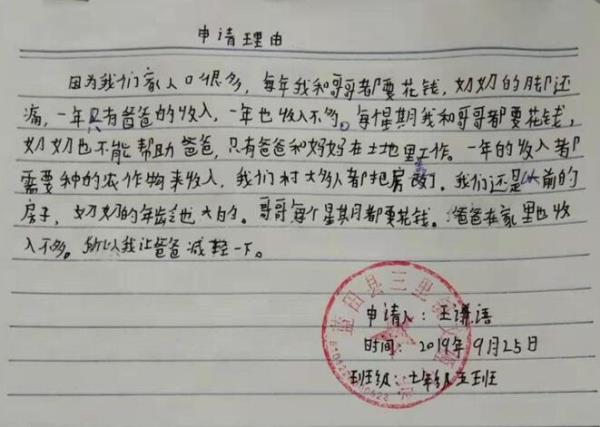 申请理由
因为我们家人口很多，每年我和哥哥都要花钱，奶奶的脚还
痛，一年只有爸爸的收入，一年也收入不多。每个星期我和哥哥都要花钱，
奶奶也不能帮助爸爸，只有爸爸和妈妈在土地里工作。一年的收入都
需要种的农作物来收入，我们村大多人都把房改了。我们还是以前的
房子，奶奶的年龄也大的。哥哥每个星期都要花钱。爸爸在家里也收
入不多。所以我让爸爸减轻一下。
蓝田县三里镇
申请人：王谦语
时间：2019年9月25日
班级：七年级五班